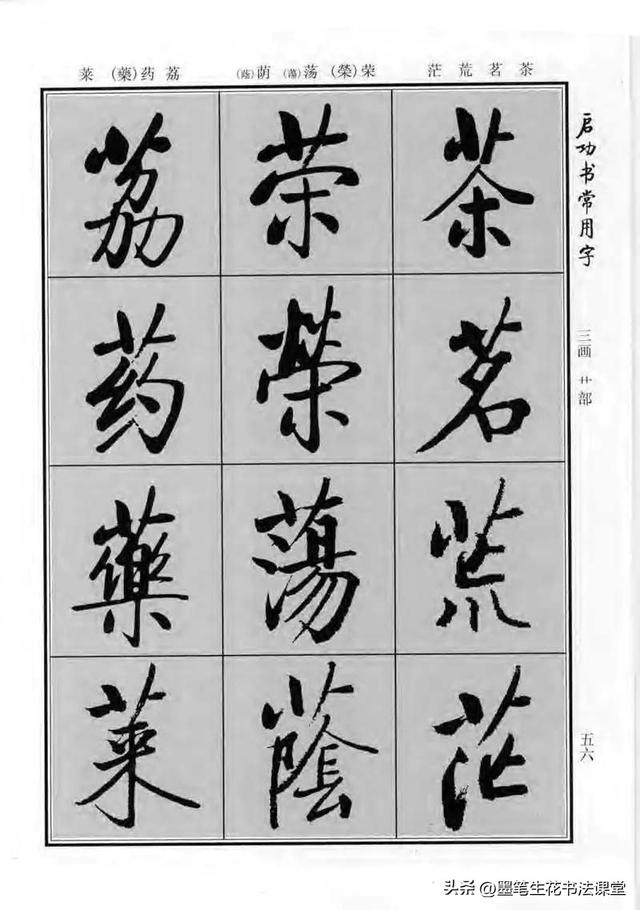 启功书常用字
三画 艹部
五六
茶 茗 荒 茫
荣(榮) 荡(蕩) 荫(蔭)
荔 药(藥) 莱
茶茗荒茫
荣榮蕩蔭
荔药藥莱
头条 @墨笔生花书法课堂